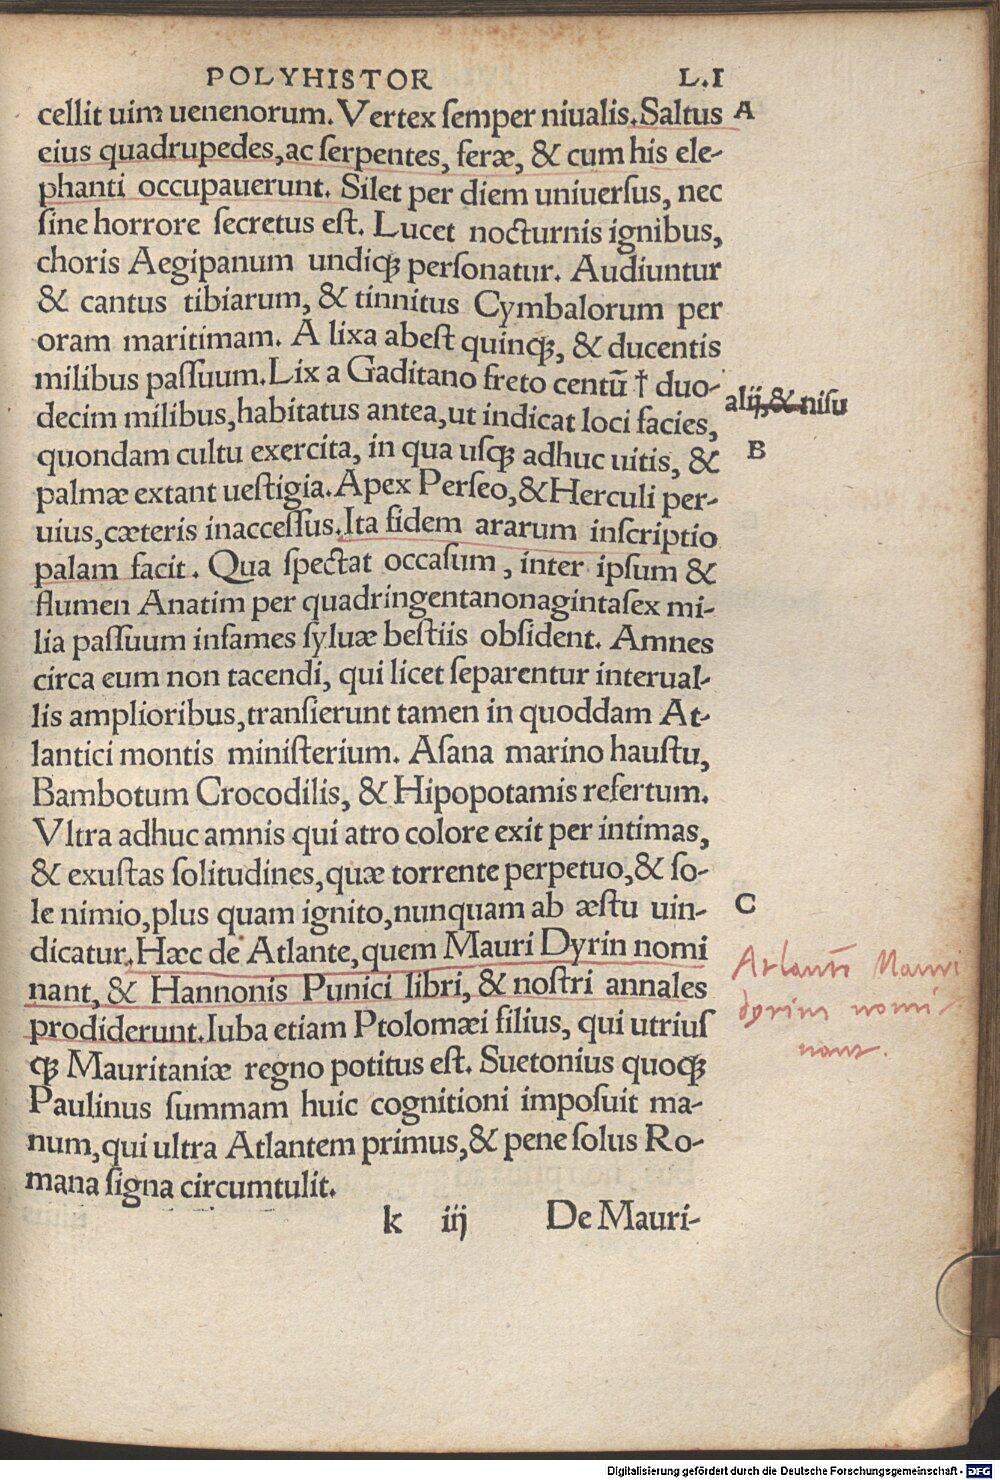 POLYHISTOR L.I
cellit uim uenenorum. Vertex ſemper niualis. Saltus A
eius quadrupedes, ac ſerpentes, feræ, & cum his ele-
phanti occupauerunt. Silet per diem uniuerſus, nec
ſine horrore ſecretus eſt. Lucet nocturnis ignibus,
choris Aegipanum undiqꝫ perſonatur. Audiuntur
& cantus tibiarum, & tinnitus Cymbalorum per
oram maritimam. A lixa abeſt quinqꝫ, & ducentis
milibus paſſuum. Lix a Gaditano freto centũ † duo-
alij, & niſu
decim milibus, habitatus antea, ut indicat loci facies,
quondam cultu exercita, in qua uſqꝫ adhuc uitis, & B
palmæ extant ueſtigia. Apex Perſeo, & Herculi per-
uius, cæteris inacceſſus. Ita fidem ararum inſcriptio
palam facit. Qua ſpectat occaſum, inter ipſum &
flumen Anatim per quadringentanonagintaſex mi-
lia paſſuum infames ſyluæ beſtiis obſident. Amnes
circa eum non tacendi, qui licet ſeparentur interual-
lis amplioribus, tranſierunt tamen in quoddam At-
lantici montis miniſterium. Aſana marino hauſtu,
Bambotum Crocodilis, & Hipopotamis refertum.
Vltra adhuc amnis qui atro colore exit per intimas,
& exuſtas ſolitudines, quæ torrente perpetuo, & ſo-
le nimio, plus quam ignito, nunquam ab æſtu uin- C
dicatur. Hæc de Atlante, quem Mauri Dyrin nomi
nant, & Hannonis Punici libri, & noſtri annales
prodiderunt. Iuba etiam Ptolomæi filius, qui utriuſ
qꝫ Mauritaniæ regno potitus eſt. Suetonius quoqꝫ
Paulinus ſummam huic cognitioni impoſuit ma-
num, qui ultra Atlantem primus, & pene ſolus Ro-
mana ſigna circumtulit.
Atlantẽ Mauri
dyrim nomi-
nant.
k iij De Mauri-
Digitalisierung gefördert durch die Deutsche Forschungsgemeinschaft - DFG